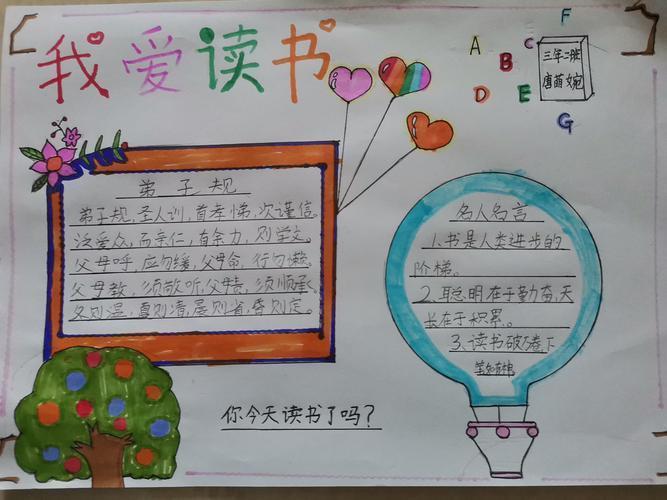 我爱读书
A
B
C
D
E
F
G
三年二班
唐萌婉
弟子规
弟子规,圣人训,首孝悌,次谨信。
泛爱众,而亲仁,有余力,则学文。
父母呼,应勿缓,父母命,行勿懒。
父母教,须敬听,父母责,须顺承。
冬则温,夏则凊,晨则省,昏则定。
名人名言
1.书是人类进步的
阶梯。
2.聪明在于勤奋,天
长在于积累。
3.读书破万卷,下
笔如有神
你今天读书了吗?